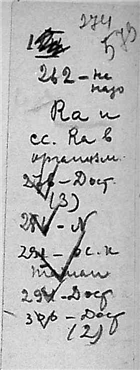 274
573
262 – не
надо
Ra и
сс. Ra в
организм.
276 – Дост.
(3)
281 – N
291 – ос. и
294 – Дост
306 – Дост
(2)